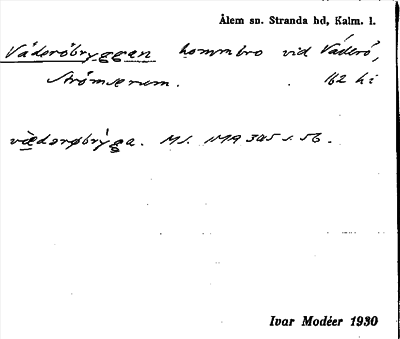 Ålem sn. Stranda hd, Kalm. l.
Väderöbryggan hommbro vid Väderö,
Strömserum. 162 hi
vædərøbryga. Ms. IMA 345 s. 56.
Ivar Modéer 1930